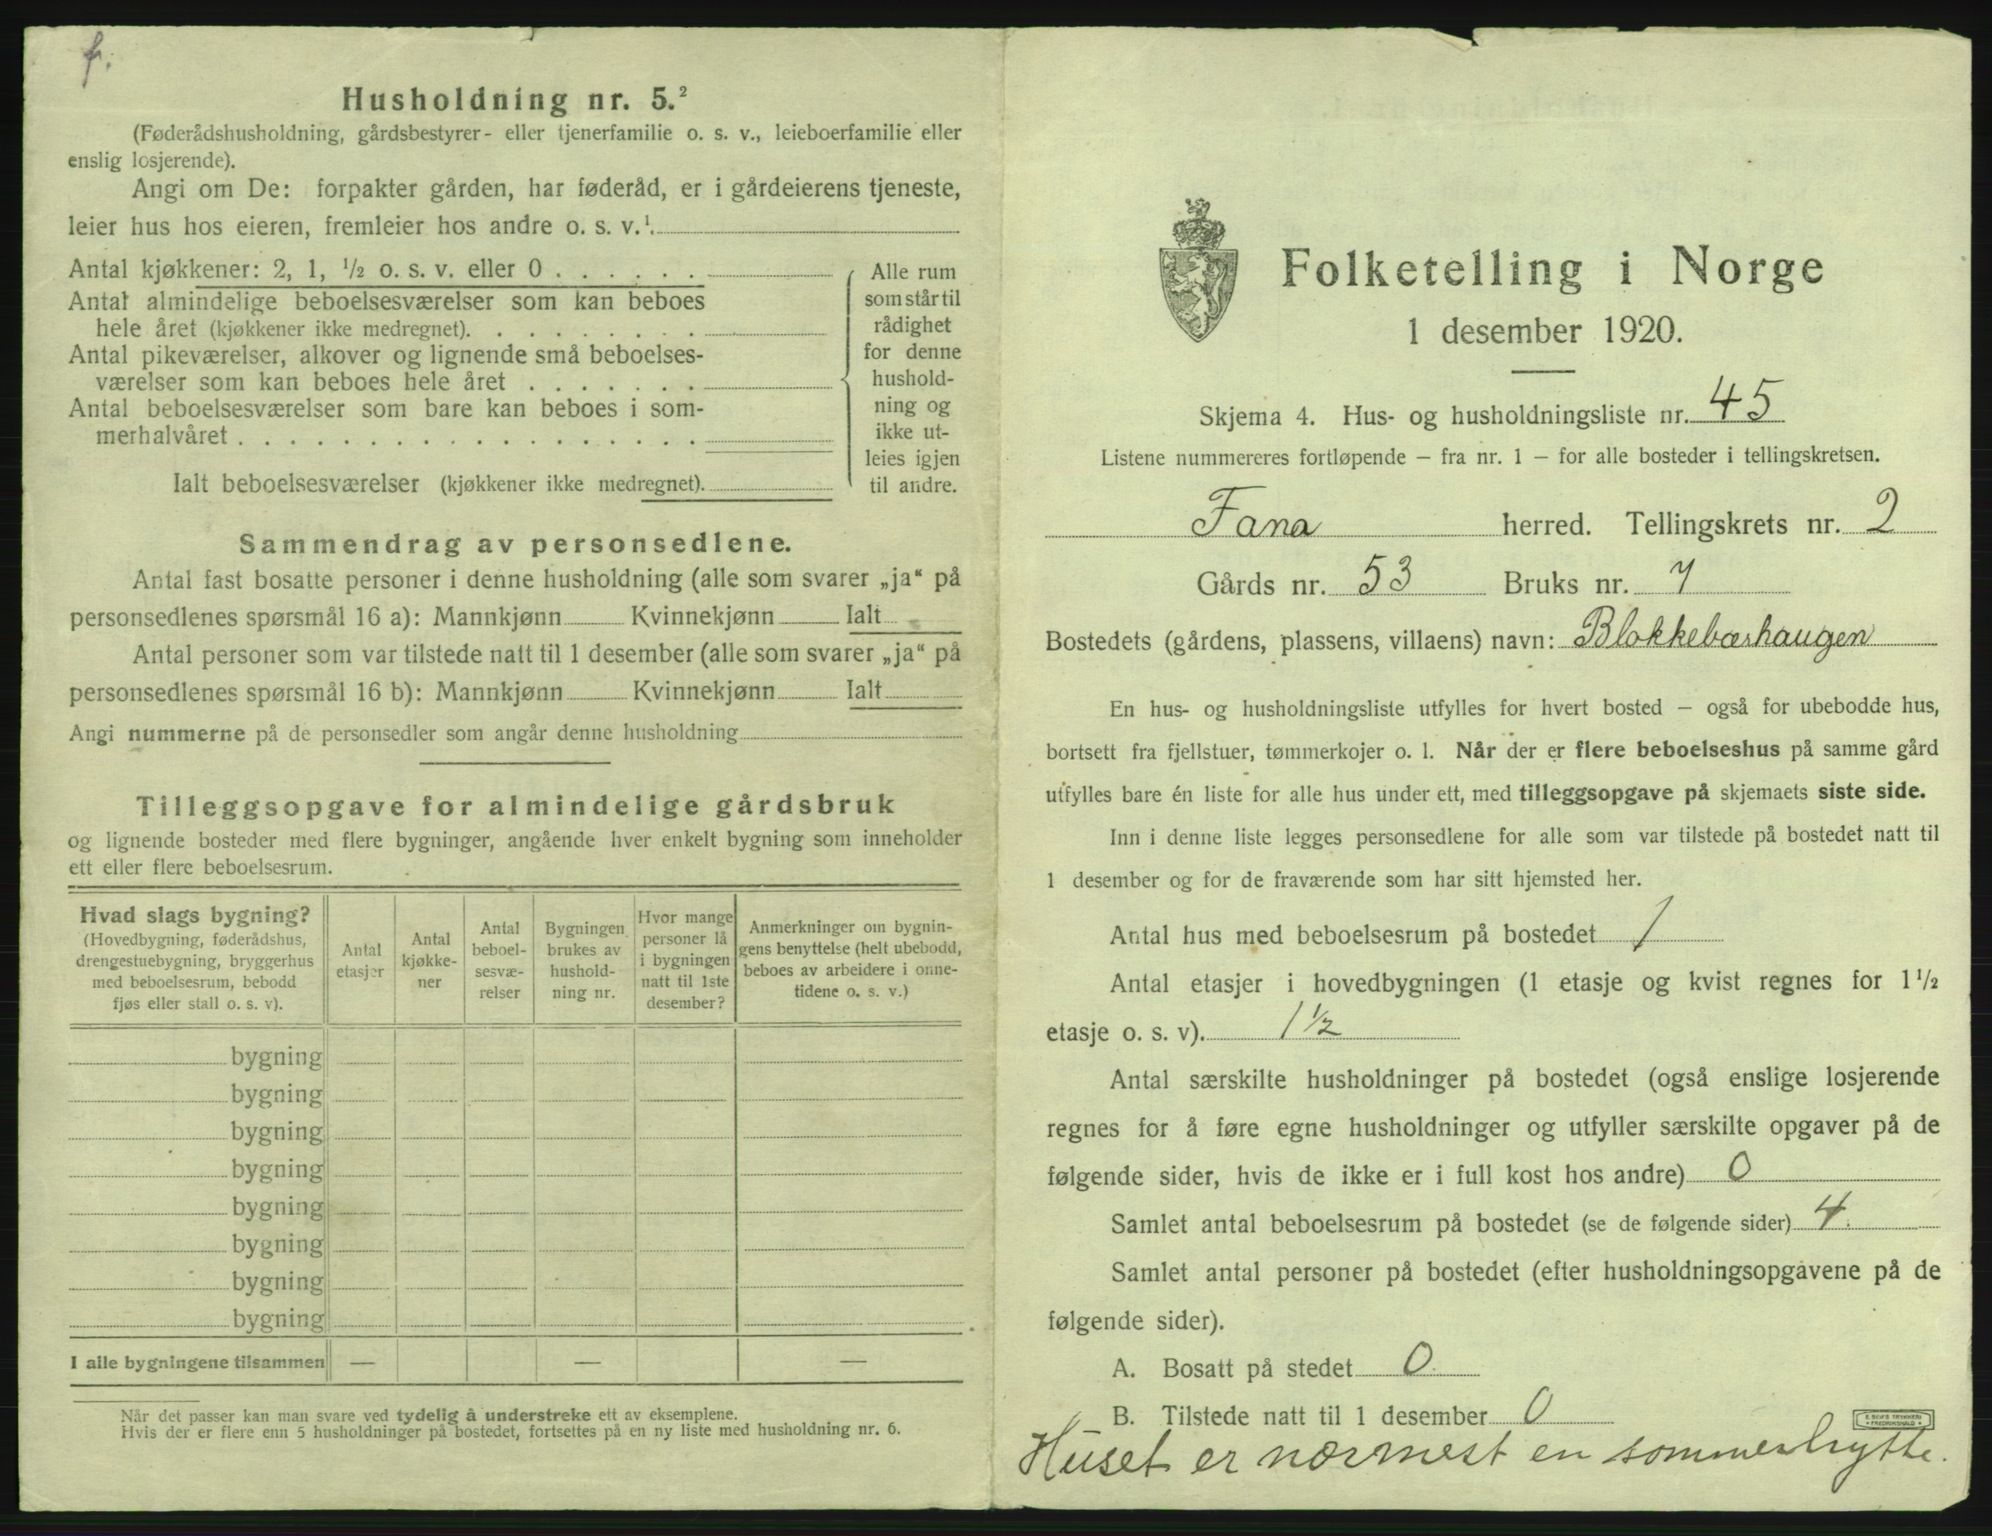 fr.
Husholdning nr. 5.²
(Føderådshusholdning, gårdsbestyrer- eller tjenerfamilie o. s. v., leieboerfamilie eller
enslig losjerende).
Angi om De: forpakter gården, har føderåd, er i gårdeierens tjeneste,
leier hus hos eieren, fremleier hos andre o. s. v.¹.
Antal kjøkkener: 2, 1, ½ o. s. v. eller 0 . . . . . .
Antal almindelige beboelsesværelser som kan beboes
hele året (kjøkkener ikke medregnet). . . . . . . . .
Antal pikeværelser, alkover og lignende små beboelses-
værelser som kan beboes hele året . . . . . . .
Antal beboelsesværelser som bare kan beboes i som-
merhalvåret . . . . . . . . . . . . . . . . . .
Ialt beboelsesværelser (kjøkkener ikke medregnet).
Alle rum
som står til
rådighet
for denne
hushold-
ning og
ikke ut-
leies igjen
til andre.
Sammendrag av personsedlene.
Antal fast bosatte personer i denne husholdning (alle som svarer „ja“ på
personsedlenes spørsmål 16 a): Mannkjønn Kvinnekjønn Ialt
Antal personer som var tilstede natt til 1 desember (alle som svarer „ja“ på
personsedlenes spørsmål 16 b): Mannkjønn Kvinnekjønn Ialt
Angi nummerne på de personsedler som angår denne husholdning
Tilleggsopgave for almindelige gårdsbruk
og lignende bosteder med flere bygninger, angående hver enkelt bygning som inneholder
ett eller flere beboelsesrum.
Hvad slags bygning?
(Hovedbygning, føderådshus,
drengestuebygning, bryggerhus
med beboelsesrum, bebodd
fjøs eller stall o. s. v).
Antal
etasjer
Antal
kjøkke-
ner
Antal
beboel-
sesvæ-
relser
Bygningen
brukes av
hushold-
ning nr.
Hvor mange
personer lå
i bygningen
natt til 1ste
desember?
Anmerkninger om bygnin-
gens benyttelse (helt ubebodd,
beboes av arbeidere i onne-
tidene o. s. v.)
bygning
bygning
bygning
bygning
bygning
bygning
bygning
bygning
I alle bygningene tilsammen — — —
Når det passer kan man svare ved tydelig å understreke ett av eksemplene.
Hvis der er flere enn 5 husholdninger på bostedet, fortsettes på en ny liste med husholdning nr. 6.
Folketelling i Norge
1 desember 1920.
Skjema 4. Hus- og husholdningsliste nr. 45
Listene nummereres fortløpende – fra nr. 1 – for alle bosteder i tellingskretsen.
Fana herred. Tellingskrets nr. 2
Gårds nr. 53 Bruks nr. 7
Bostedets (gårdens, plassens, villaens) navn: Blokkebærhaugen
En hus- og husholdningsliste utfylles for hvert bosted – også for ubebodde hus,
bortsett fra fjellstuer, tømmerkojer o. l. Når der er flere beboelseshus på samme gård
utfylles bare én liste for alle hus under ett, med tilleggsopgave på skjemaets siste side.
Inn i denne liste legges personsedlene for alle som var tilstede på bostedet natt til
1 desember og for de fraværende som har sitt hjemsted her.
Antal hus med beboelsesrum på bostedet 1
Antal etasjer i hovedbygningen (1 etasje og kvist regnes for 1½
etasje o. s. v). 1½
Antal særskilte husholdninger på bostedet (også enslige losjerende
regnes for å føre egne husholdninger og utfyller særskilte opgaver på de
følgende sider, hvis de ikke er i full kost hos andre) 0
Samlet antal beboelsesrum på bostedet (se de følgende sider) 4.
Samlet antal personer på bostedet (efter husholdningsopgavene på de
følgende sider).
A. Bosatt på stedet 0
B. Tilstede natt til 1 desember 0
E. SEM'S TRYKKERI
FREDRIKSHALD
Huset er nærmest en sommerhytte.